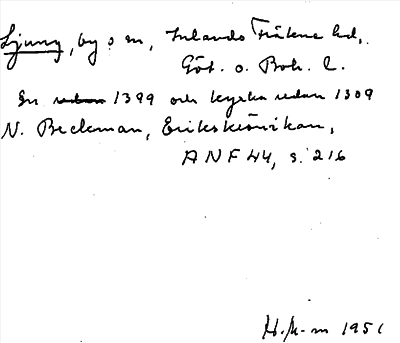 Ljung, by o sn, Inlands Fräkne hd,
Göt. o. Boh. l.
sn 1399 och kyrka redan 1309
N. Beckman, Erikskrönikan,
ANF 44, s. 216
H. K-m 1951